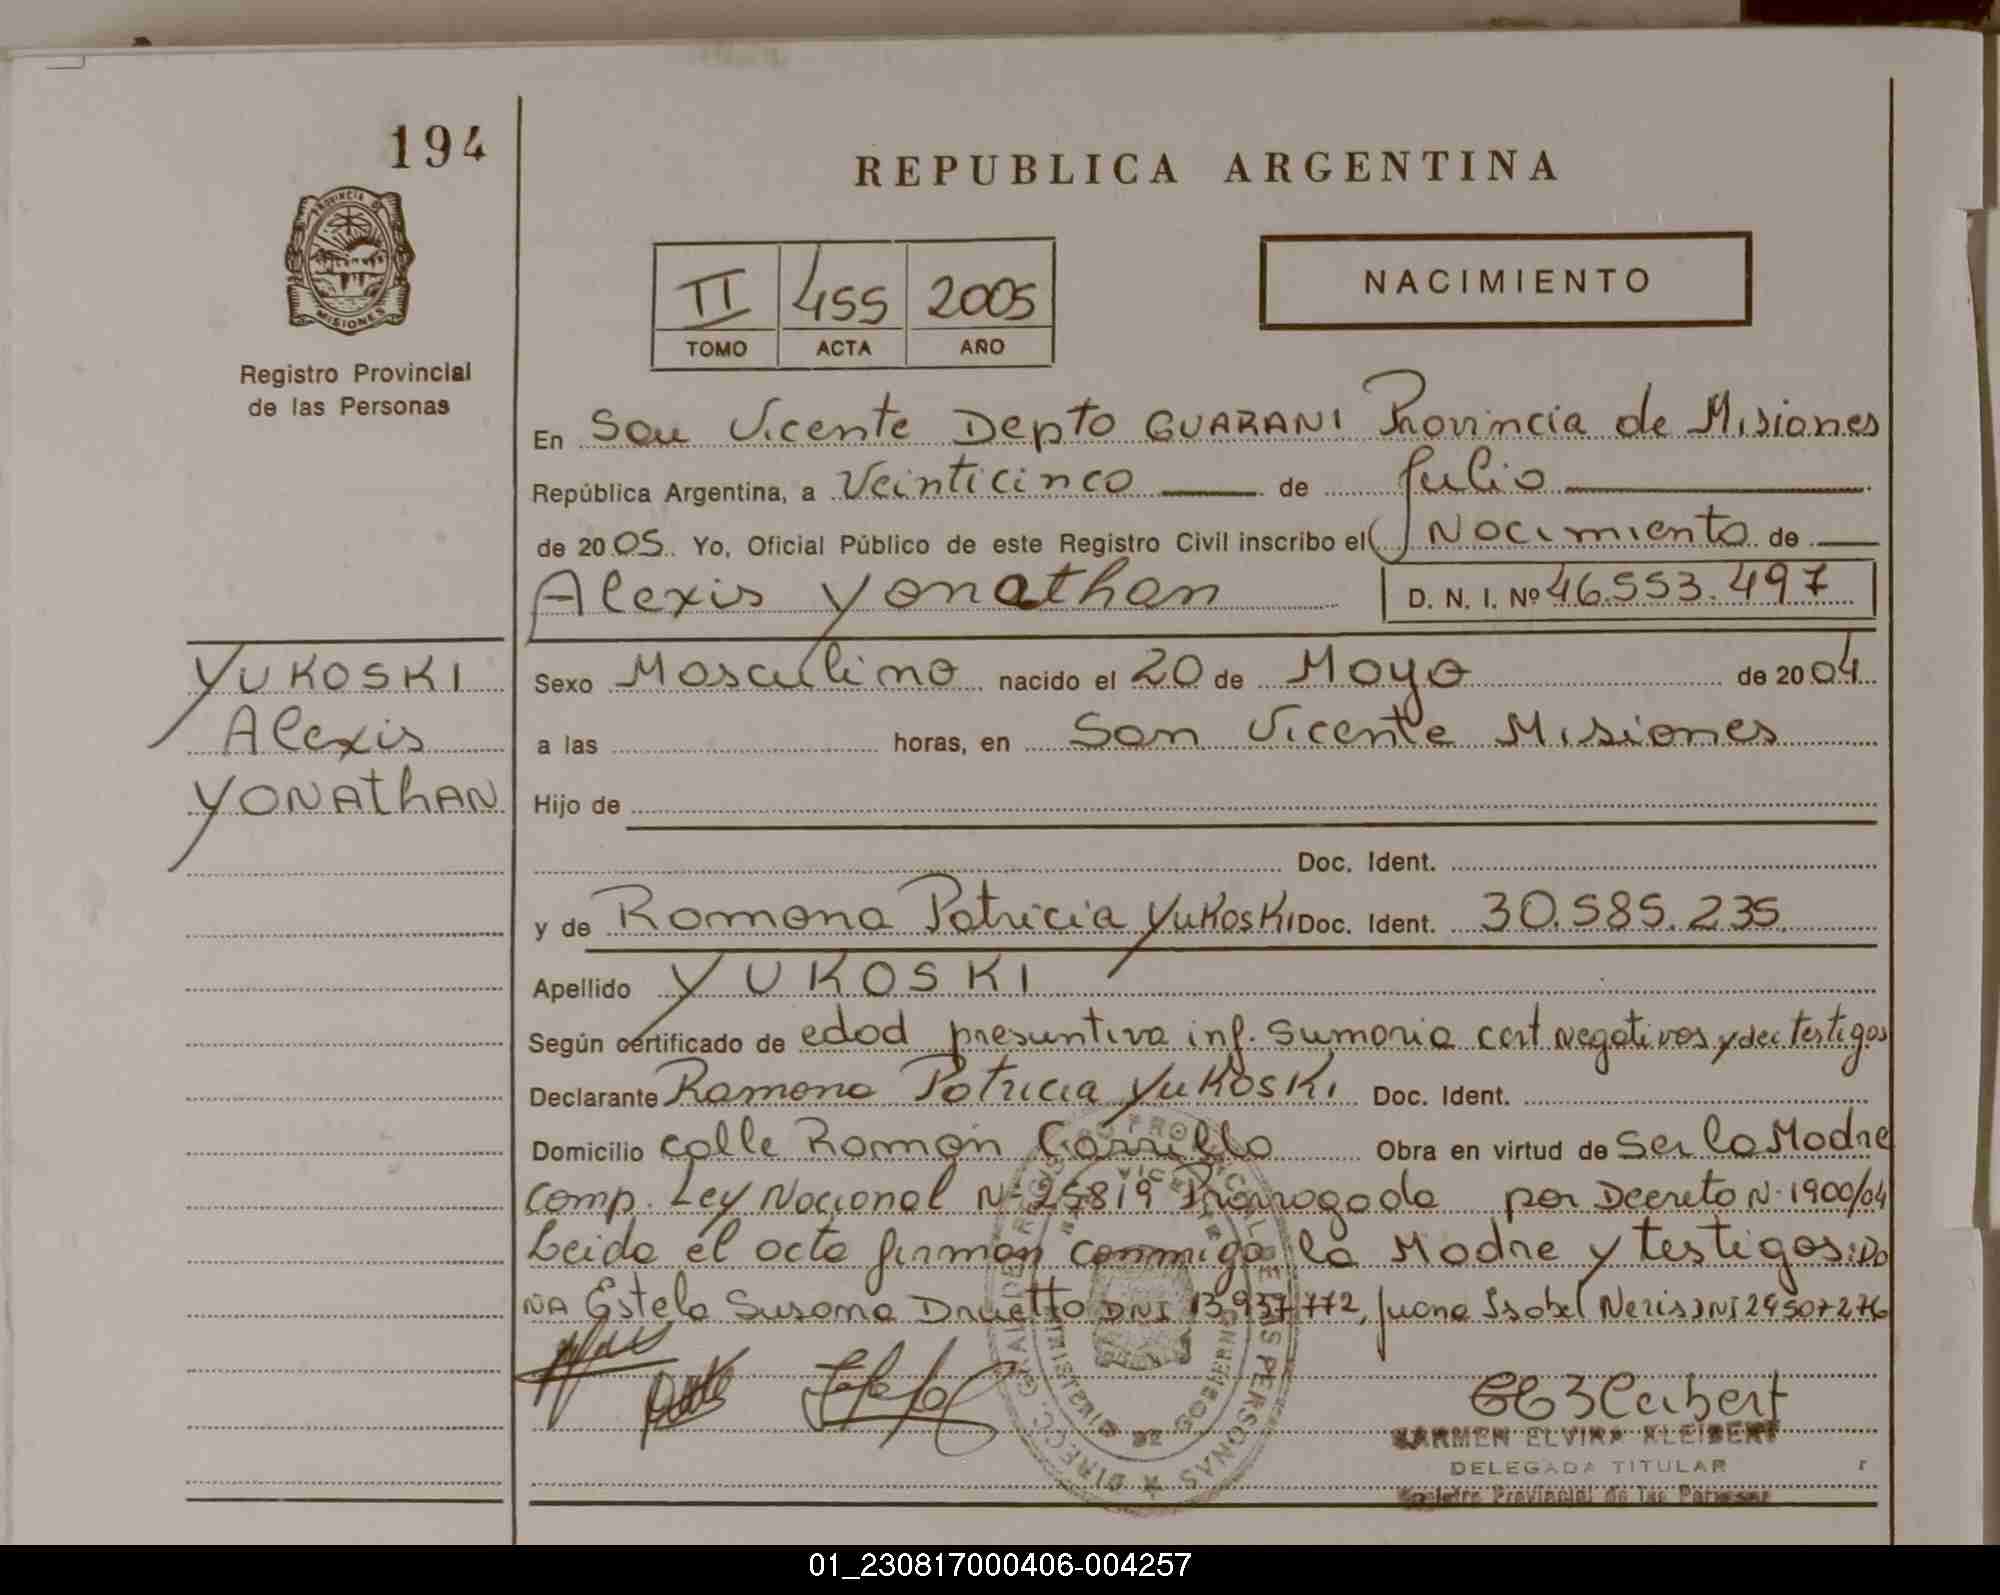 194
REPUBLICA ARGENTINA
PROVINCIA DE
MISIONES
Registro Provincial
de las Personas
II 455 2005
TOMO ACTA AÑO
NACIMIENTO
En San Vicente Depto GUARANI Provincia de Misiones
República Argentina, a Veinticinco de Julio
de 2005. Yo, Oficial Público de este Registro Civil inscribo el Nacimiento de
Alexis Yonathan D. N. I. Nº 46.553.497
YUKOSKI
Alexis
YONAthAN
Sexo Masculino nacido el 20 de Mayo de 2004
a las horas, en San Vicente Misiones
Hijo de
Doc. Ident.
y de Ramona Patricia YuKosKi Doc. Ident. 30.585.235
Apellido YUKOSKI
Según certificado de edad presuntiva inf. Sumaria cert negativos y dec testigos
Declarante Ramona Patricia YuKosKi Doc. Ident.
Domicilio calle Ramón Carrillo Obra en virtud de Ser la Madre
Comp. Ley Nacional Nº 25819 Prorrogada por Decreto Nº 1900/04
Leida el acta firman conmigo la Madre y testigos: Do
ÑA Estela Susana Druetto DNI 13.937.772, Juana Isabel Neris DNI 29507276
KARMEN ELVIRA KLEIBERT
DELEGADA TITULAR
Registro Provincial de las Personas
01_230817000406-004257